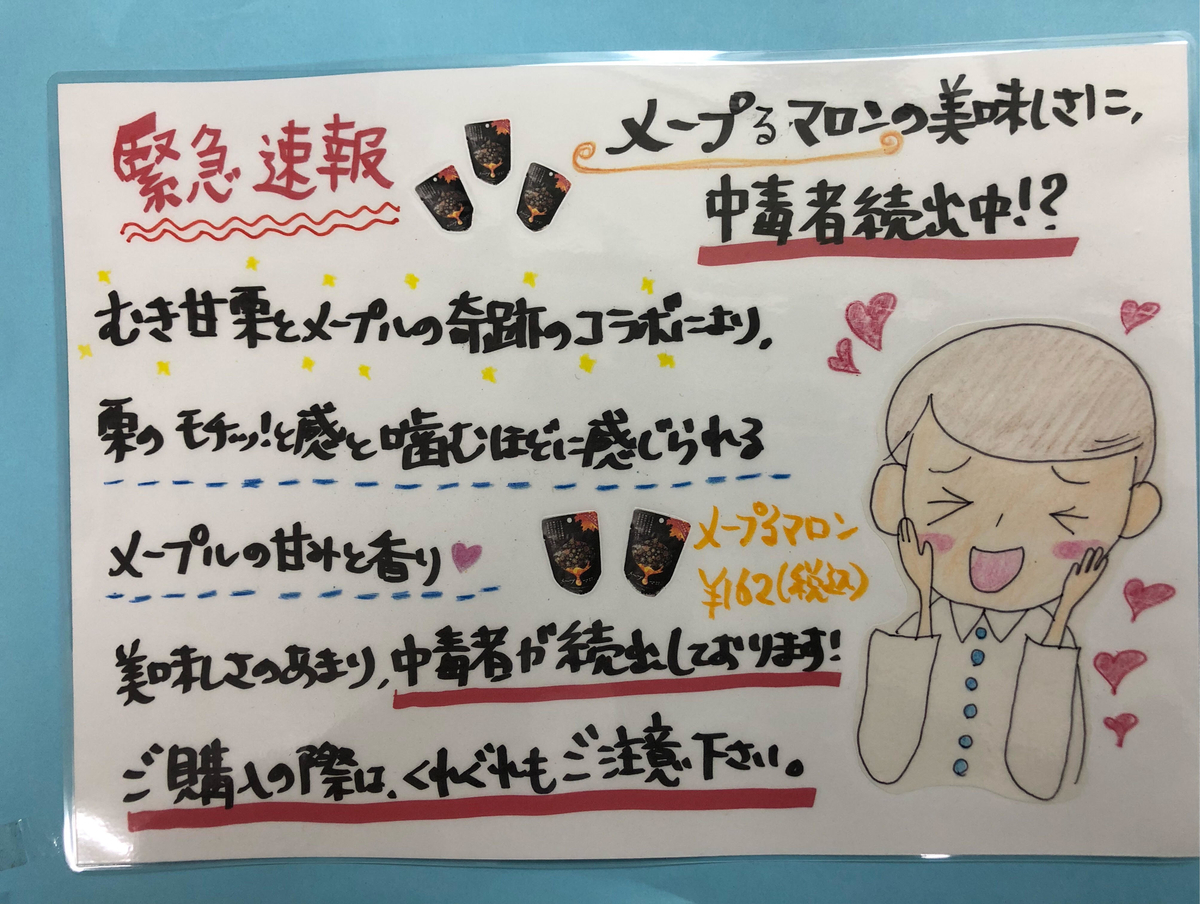 緊急速報
メープるマロンの美味しさに、
中毒者続出中!?
むき甘栗とメープルの奇跡のコラボにより、
栗のモチッ!と感と噛むほどに感じられる
メープルの甘みと香り
メープるマロン
¥162(税込)
美味しさのあまり、中毒者が続出しております!
ご購入の際は、くれぐれもご注意下さい。